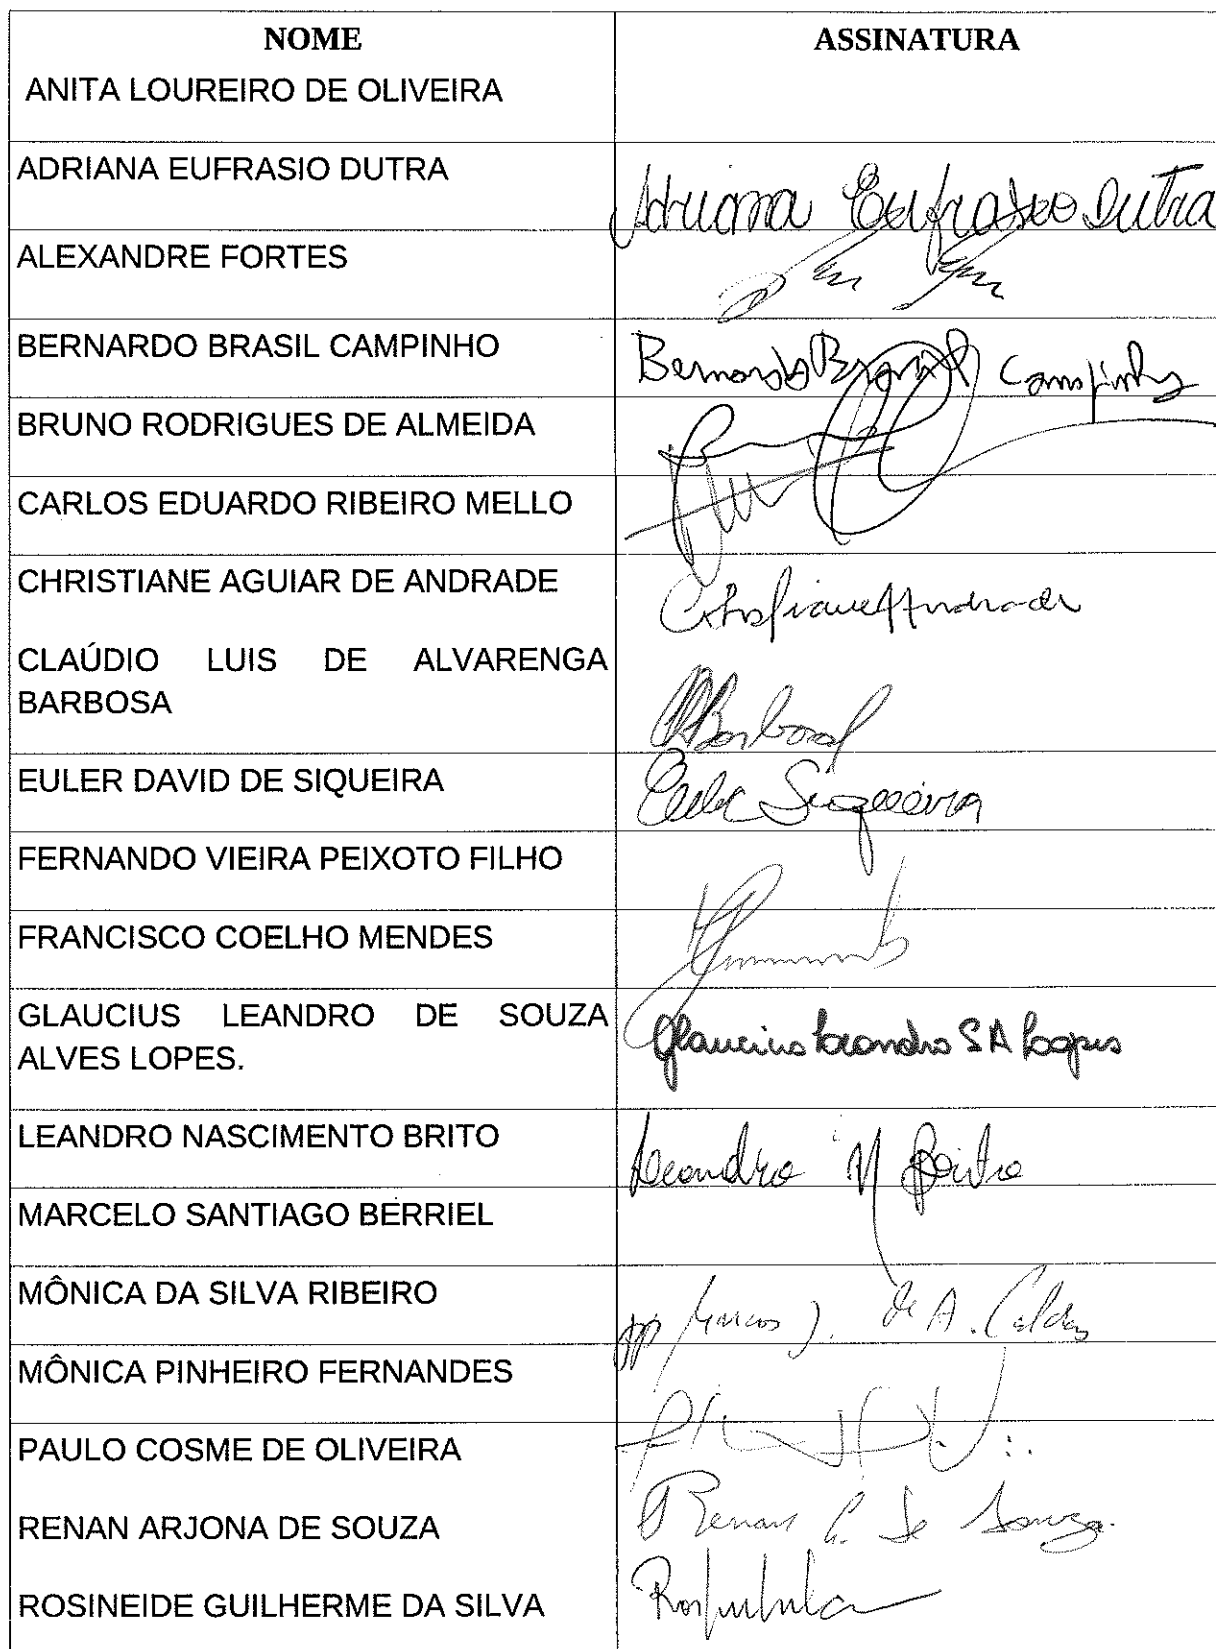 NOME ASSINATURA
ANITA LOUREIRO DE OLIVEIRA
ADRIANA EUFRASIO DUTRA Adriana Eufrasio Dutra
ALEXANDRE FORTES
BERNARDO BRASIL CAMPINHO Bernardo Brasil Campinho
BRUNO RODRIGUES DE ALMEIDA
CARLOS EDUARDO RIBEIRO MELLO
CHRISTIANE AGUIAR DE ANDRADE Christiane A Andrade
CLAÚDIO LUIS DE ALVARENGA
BARBOSA Barbosa
EULER DAVID DE SIQUEIRA Euler Siqueira
FERNANDO VIEIRA PEIXOTO FILHO
FRANCISCO COELHO MENDES
GLAUCIUS LEANDRO DE SOUZA
ALVES LOPES. Glaucius Leandro S A Lopes
LEANDRO NASCIMENTO BRITO Leandro N Brito
MARCELO SANTIAGO BERRIEL
MÔNICA DA SILVA RIBEIRO pp Marcos J. de A. Caldas
MÔNICA PINHEIRO FERNANDES
PAULO COSME DE OLIVEIRA
RENAN ARJONA DE SOUZA Renan A. de Souza
ROSINEIDE GUILHERME DA SILVA